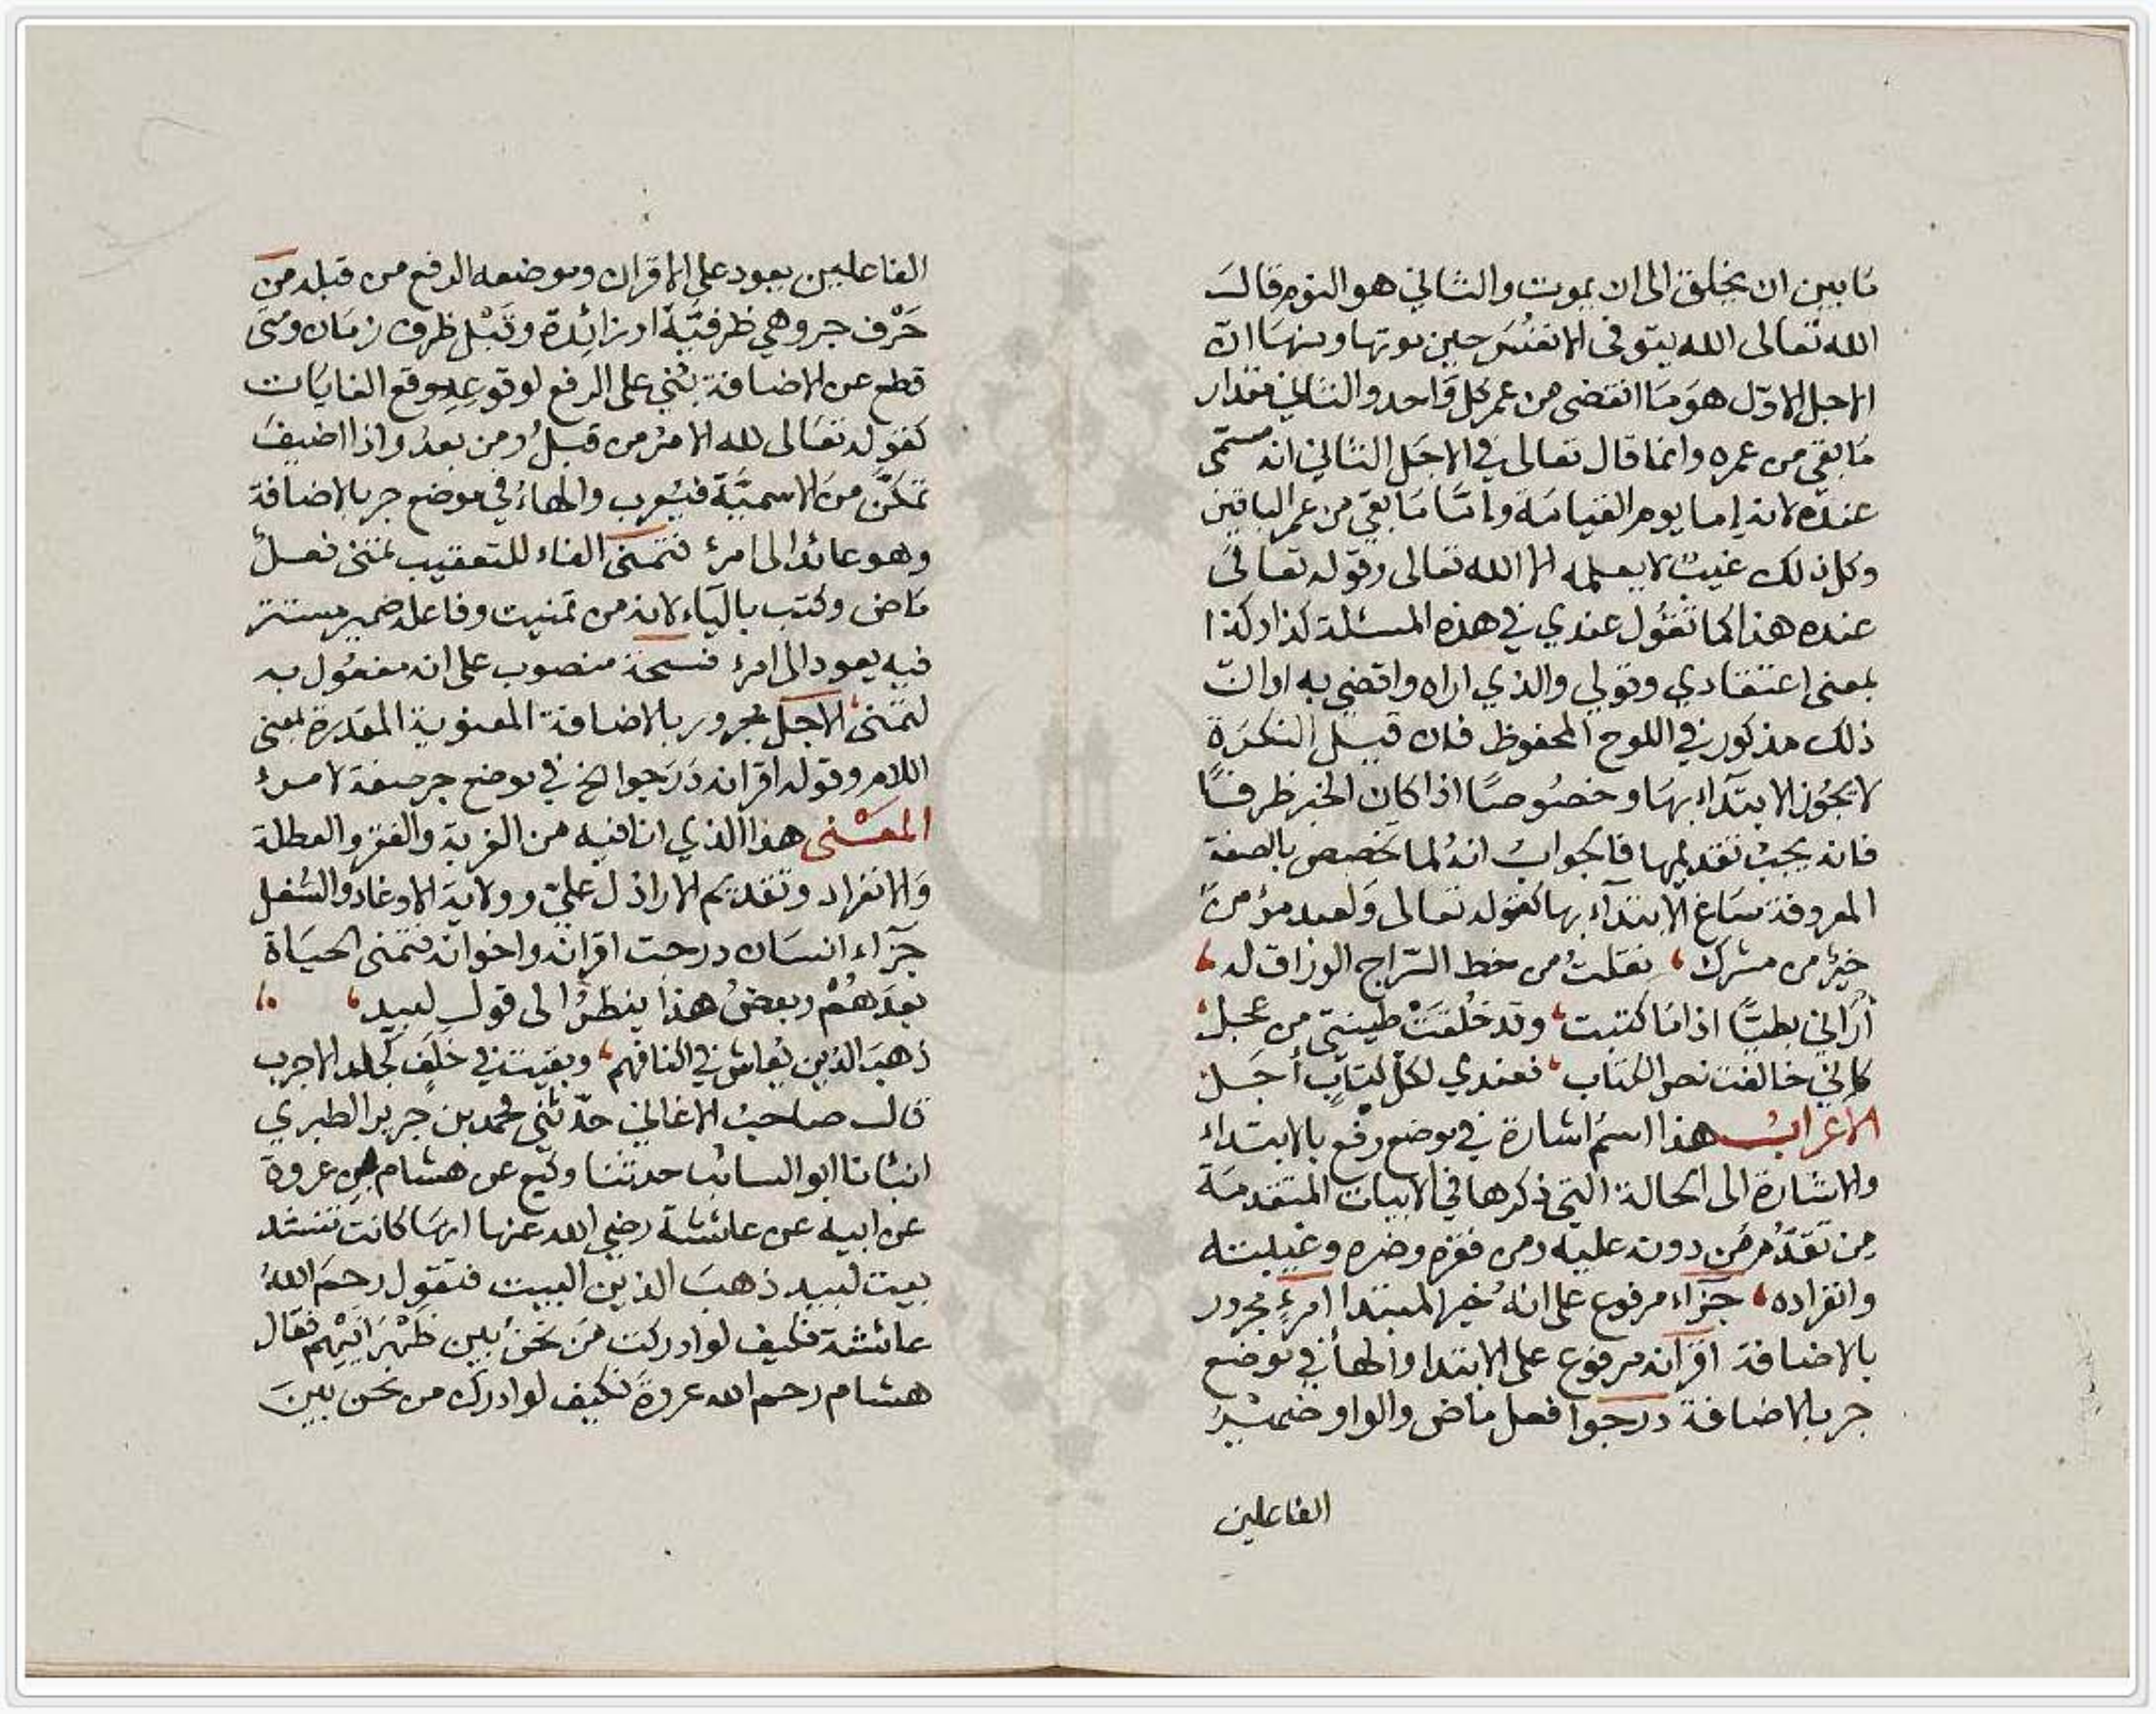 مَا بين ان يخلق الى ان يموت والثاني هو النوم قالَ
الله تعالى الله يتوفى الانفُسَ حين موتها ومنهَا انّ
الاجل الاوّل هوَ مَا انقضى من عمر كل وَاحد والثاني مقدار
مَا بقي من عمره وانما قال تعالى في الاجَل الثاني انه مسمّى
عنده لانه إما يوم القيامَة وامّا مَا بقي من عمر الباقين
وكل ذلك غيبٌ لا يعلمه الا الله تعالى وقوله تعالى
عنده هذا كما تقُول عندي في هذه المسئلة كذا وكذا
بمعنى إعتقادي وقولي والذي اراه واقضي به او انّ
ذلك مذكور في اللوح المحفوظ فان قيل النكرَة
لا يجُوز الابتدآء بهَا وخصُوصًا اذا كان الخبر ظرفًا
فانه يجبُ تقديمها فالجوابُ انهُ لما تخصص بالصفة
المعروفة سَاغ الابتدآء بها كقوله تعالى وَلعبد مؤمنٌ
خيرٌ من مشرك، نقلتُ من خط السّراج الوراق له،
أراني بطيًا اذا مَا كتبت، وقد خُلقتْ طينتي من عجل،
كاني خالفت نص الكتاب، فعندي لكل كتابٍ أجَل
الاعرابُ هذا اسمُ اشارة في موضع رفع بالابتداء
والاشارة الى الحالة التي ذكرها في الابيات المتقدمَة
مِن تقدُّم مَن دونه عليه ومن فقره وضره وغيبته
وانفراده، جزَآء مرفوع على انهُ خبر المبتدا امرءٍ مجرور
بالاضافة اقرآنه مرفوع على الابتدا والهآ في موضع
جر بالاضافة درجوا فعل ماض والواو ضميرُ
الفاعلين
الفاعلين يعود على الاقران وموضعه الرفع من قبله من
حَرْف جر وهي ظرفيَّة او زائِدة وقَبْل ظرف زمَان ومتى
قطع عن الاضافة بُني على الرفع لوقوعِهِ موقع الغايَات
كقوله تعَالى لله الامرُ من قبلُ ومن بعدُ واذا اضيفَ
تمكَّن منَ الاسميَّة فيُعرب والهاءُ في موضع جر بالاضافة
وهو عائد الى امرءٍ فتمنى الفاء للتعقيب تمنى فعلٌ
مَاض وكتب باليَاء لانه من تمنيت وفاعله ضمير مستتر
فيه يعود الى امرءٍ فسحة منصوب على انه مفعُول به
لتمنى، الاجَل مجرور بالاضافة المعنوية المقدرة بمعنى
اللام وقوله اقرانه دَرَجوا الخ في موضع جر صفة لامرء
المعْنى هذا الذي انا فيه من الغربة والفقر والعطلة
وَالانفراد وتقديم الاراذل عليّ وولاية الاوغاد والسُفل
جزآء انسَان درجت اقرانه واخوانه فتمنى الحيَاة
بعدَهُمْ وبعضُ هذا ينظرُ الى قول لبيد،
ذهبَ الذين يُعاش في اكنافهم، وبقيت في خَلَفٍ كجلد الاجرب
قال صاحبُ الاغاني حدّثني محمد بن جرير الطبري
انبانا ابو السائب حدثنا وكيع عن هشام بن عروة
عن ابيه عن عائشة رضي الله عنها انهَا كانت تنشد
بيت لبيد ذهبَ الذين البيت فتقول رحمَ اللهُ
عائشة فكيف لو ادركت مَن نحنُ بين ظَهْرَانيْهم فقال
هشام رحم الله عروةً فكيف لو ادرك من نحن بينَ